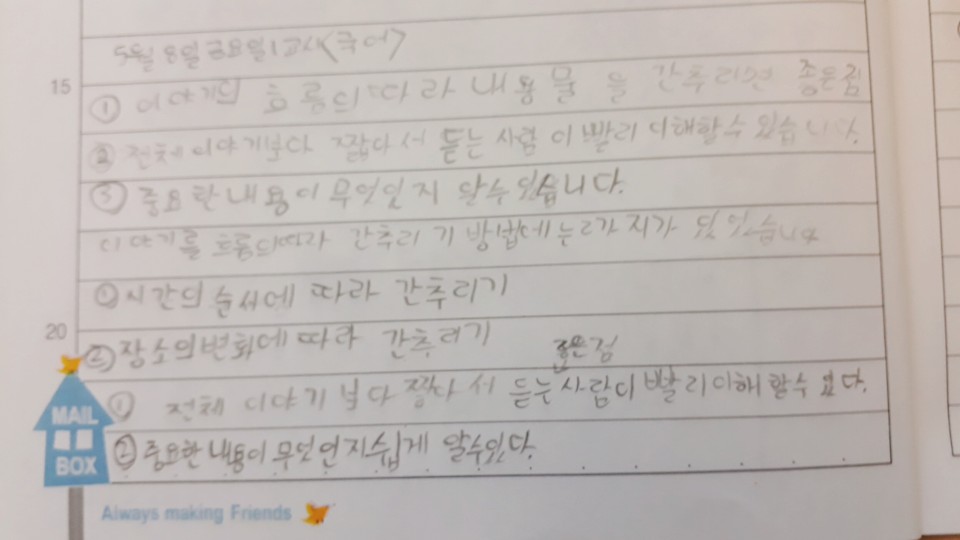 5월 8일 금요일 1교시<국어>
15
① 이야기의 흐름의 따라 내용물을 간추리면 좋은점
② 전체 이야기보다 짧다서 듣는 사람이 빨리 이해할수 있습니다.
③ 중요한 내용이 무엇인지 알수 있습니다.
이야기를 흐름의따라 간추리기 방법에는 2가지가 있습니다
① 시간의 순서에 따라 간추리기
20
② 장소의 변화에 따라 간추리기
좋은점
① 전체 이야기 보다 짧다서 듣는 사람이 빨리 이해 할수 있다.
② 중요한 내용이 무엇인지 쉽게 알수있다.
MAIL
BOX
Always making Friends